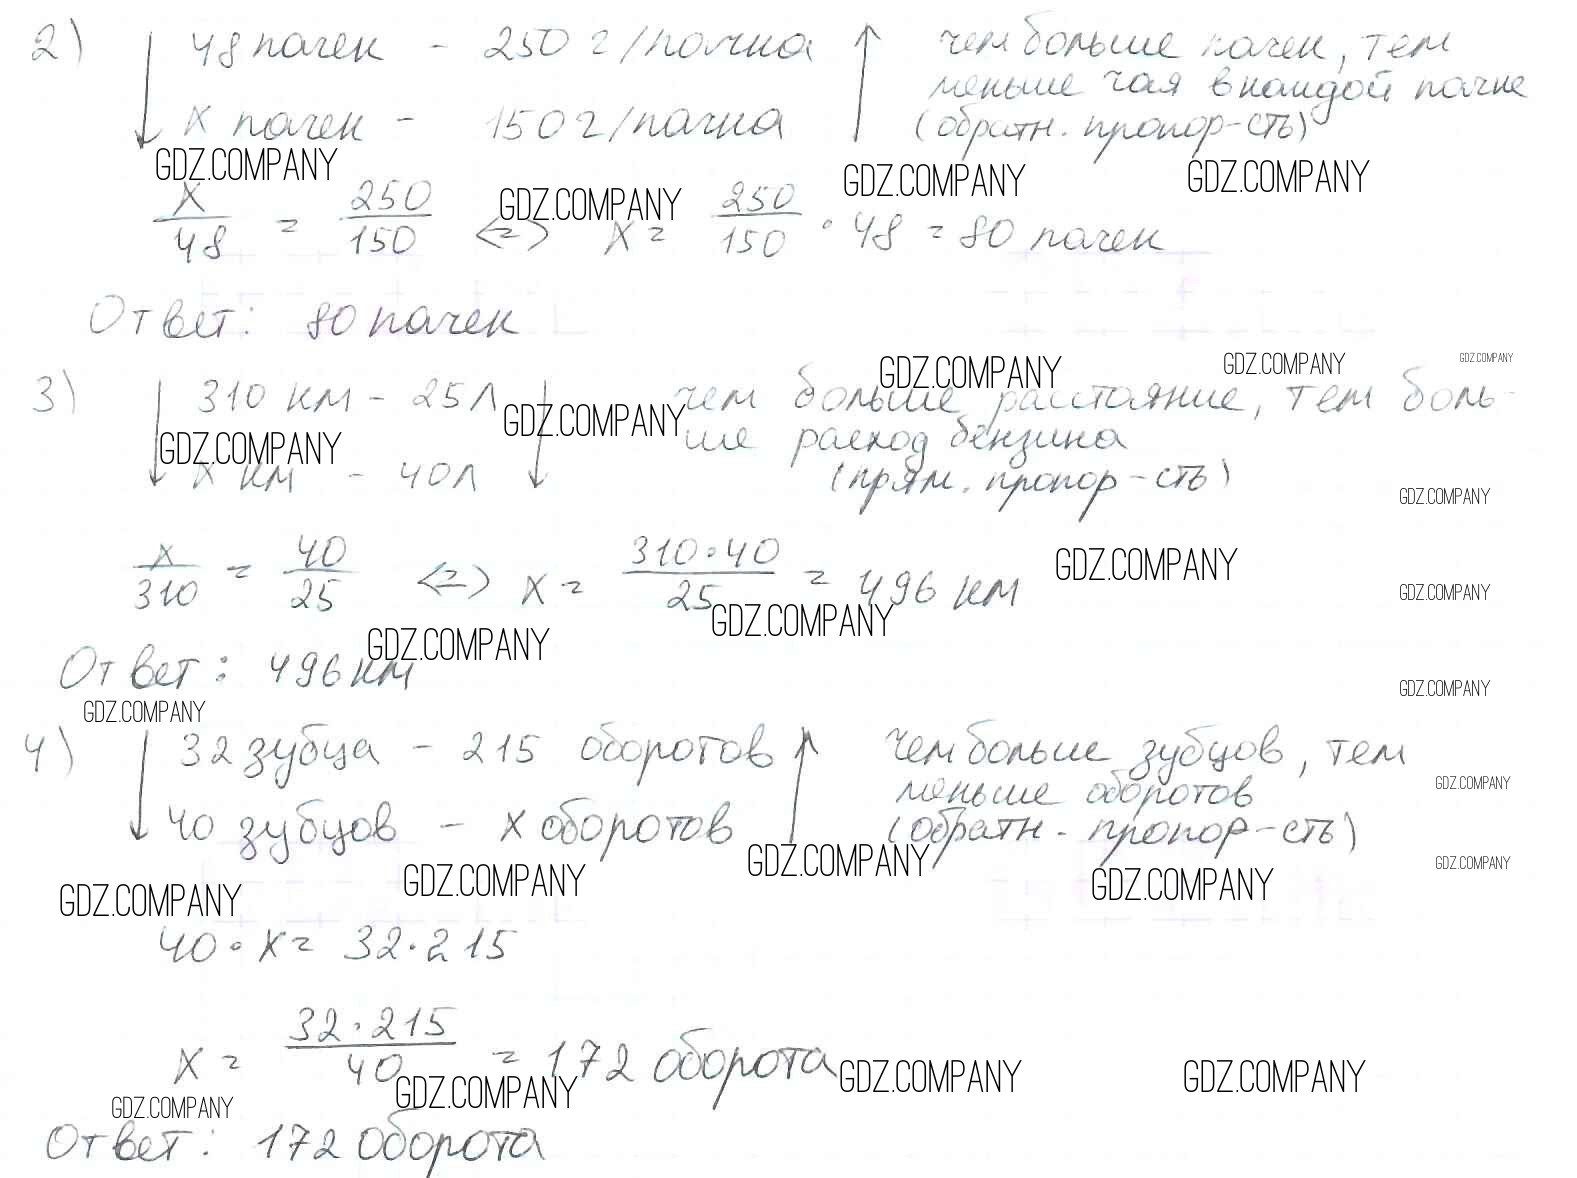 2) 48 пачек - 250 г/пачка чем больше пачек, тем
меньше чая в каждой пачке
x пачек - 150 г/пачка (обратн. пропор-сть)
GDZ.COMPANY
GDZ.COMPANY GDZ.COMPANY GDZ.COMPANY
x/48 = 250/150 <=> x = 250/150 · 48 = 80 пачек
Ответ: 80 пачек
GDZ.COMPANY GDZ.COMPANY GDZ.COMPANY
3) 310 км - 25 л чем больше расстояние, тем боль-
GDZ.COMPANY GDZ.COMPANY
ше расход бензина
x км - 40 л (прям. пропор-сть)
GDZ.COMPANY
x/310 = 40/25 <=> x = 310·40/25 = 496 км
GDZ.COMPANY
GDZ.COMPANY
GDZ.COMPANY GDZ.COMPANY
Ответ: 496 км
GDZ.COMPANY
GDZ.COMPANY
4) 32 зубца - 215 оборотов чем больше зубцов, тем
меньше оборотов
GDZ.COMPANY
40 зубцов - x оборотов (обратн. пропор-сть)
GDZ.COMPANY GDZ.COMPANY GDZ.COMPANY GDZ.COMPANY GDZ.COMPANY
40 · x = 32·215
x = 32·215/40 = 172 оборота
GDZ.COMPANY GDZ.COMPANY GDZ.COMPANY
GDZ.COMPANY
Ответ: 172 оборота